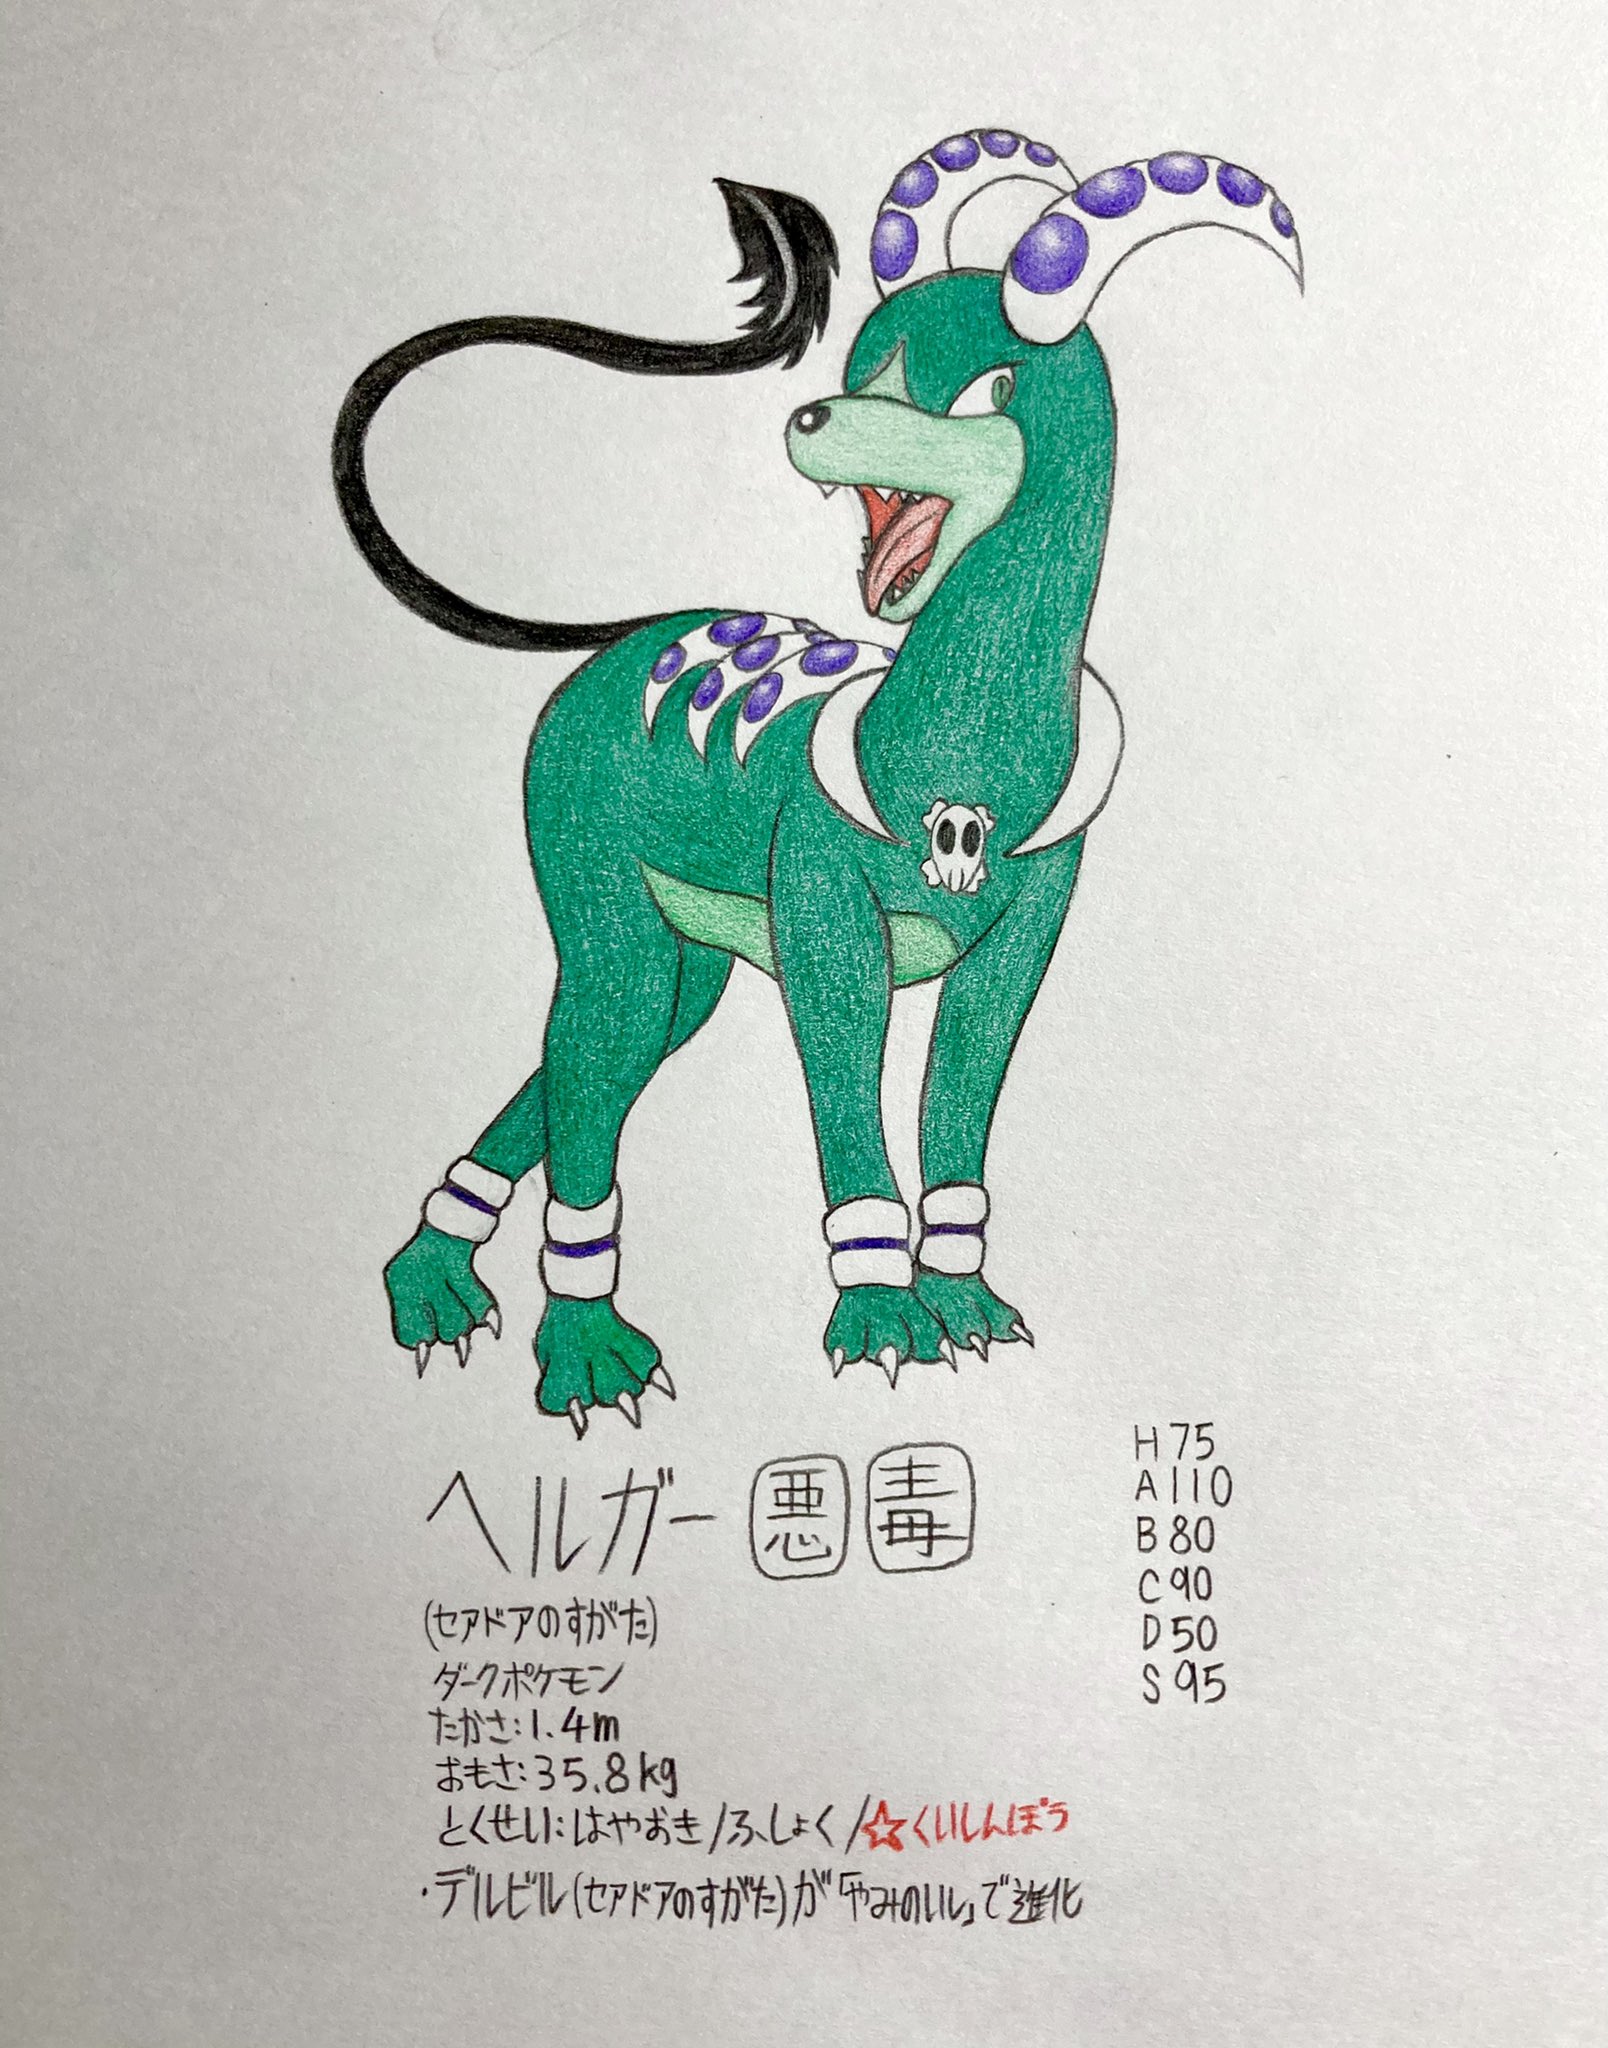 ヘルガー 悪 毒
(セアドアのすがた)
ダークポケモン
たかさ:1.4m
おもさ:35.8kg
とくせい:はやおき/ふしょく/☆くいしんぼう
・デルビル(セアドアのすがた)が「やみのいし」で進化
H75
A110
B80
C90
D50
S95